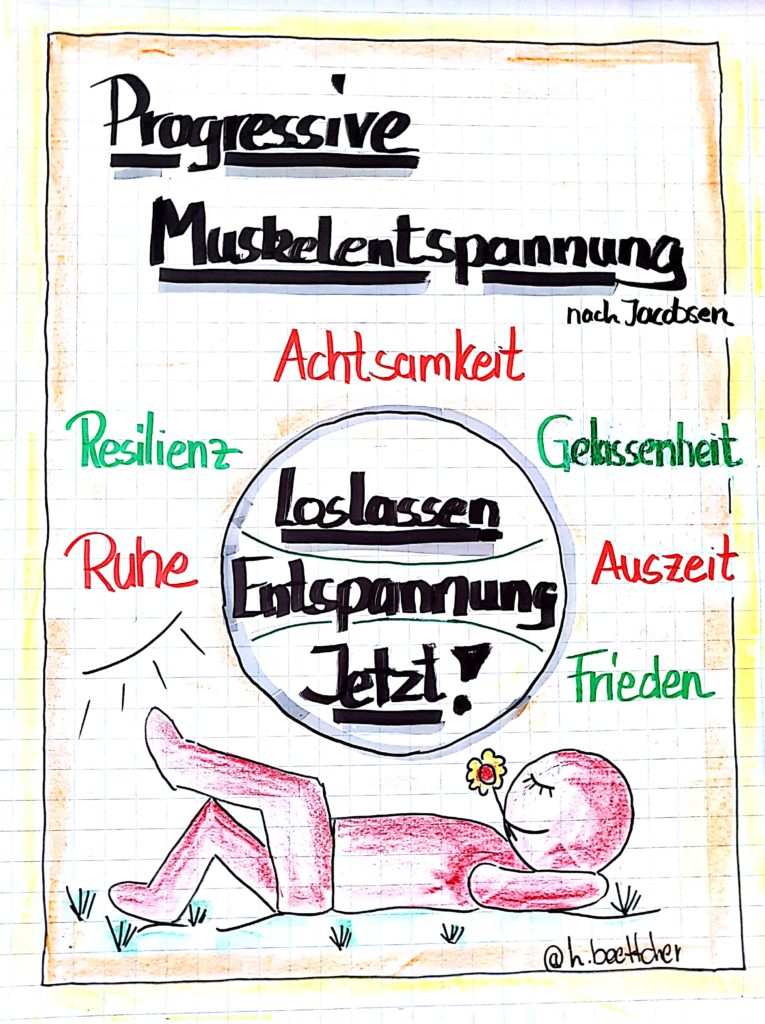 Progressive
Muskelentspannung
nach Jacobsen
Achtsamkeit
Resilienz
Gelassenheit
Loslassen
Ruhe
Entspannung
Auszeit
Jetzt!
Frieden
@h.boettcher